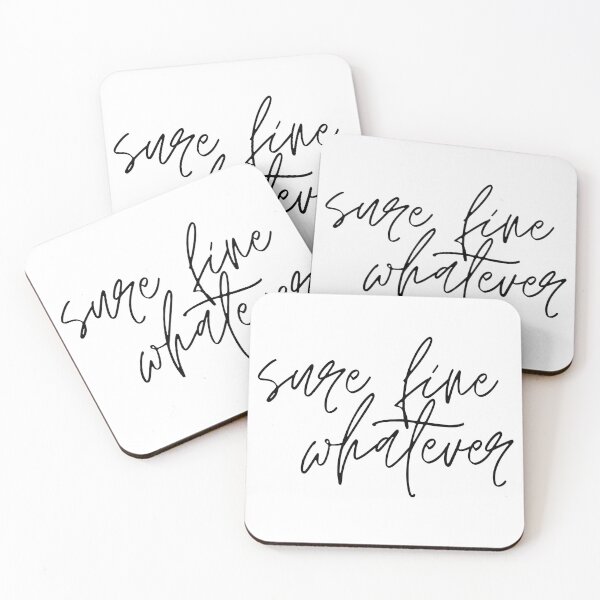 sure fine
sure fine
whatever
sure fine
whatever
sure fine
whatever